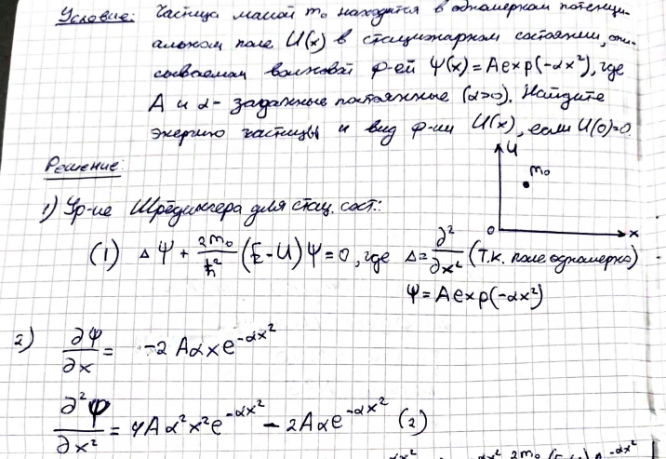 Условие: Частица массой m₀ находится в одномерном потенци-
альном поле U(x) в стационарном состоянии, опи-
сываемом волновой ф-ей Ψ(x)=Aexp(-αx²), где
A и α- заданные постоянные (α>0). Найдите
энергию частицы и вид ф-ии U(x), если U(0)=0.
Решение:
U
m₀
0
x
1) Ур-ие Шрёдингера для стац. сост.:
(1) Δ Ψ + 2m₀/ħ² (E-U)Ψ=0, где Δ=∂²/∂x² (т.к. поле одномерно)
Ψ=Aexp(-αx²)
2) ∂Ψ/∂x = -2Aαxe^{-αx²}
∂²Ψ/∂x² = 4Aα²x²e^{-αx²} - 2Aαe^{-αx²} (2)